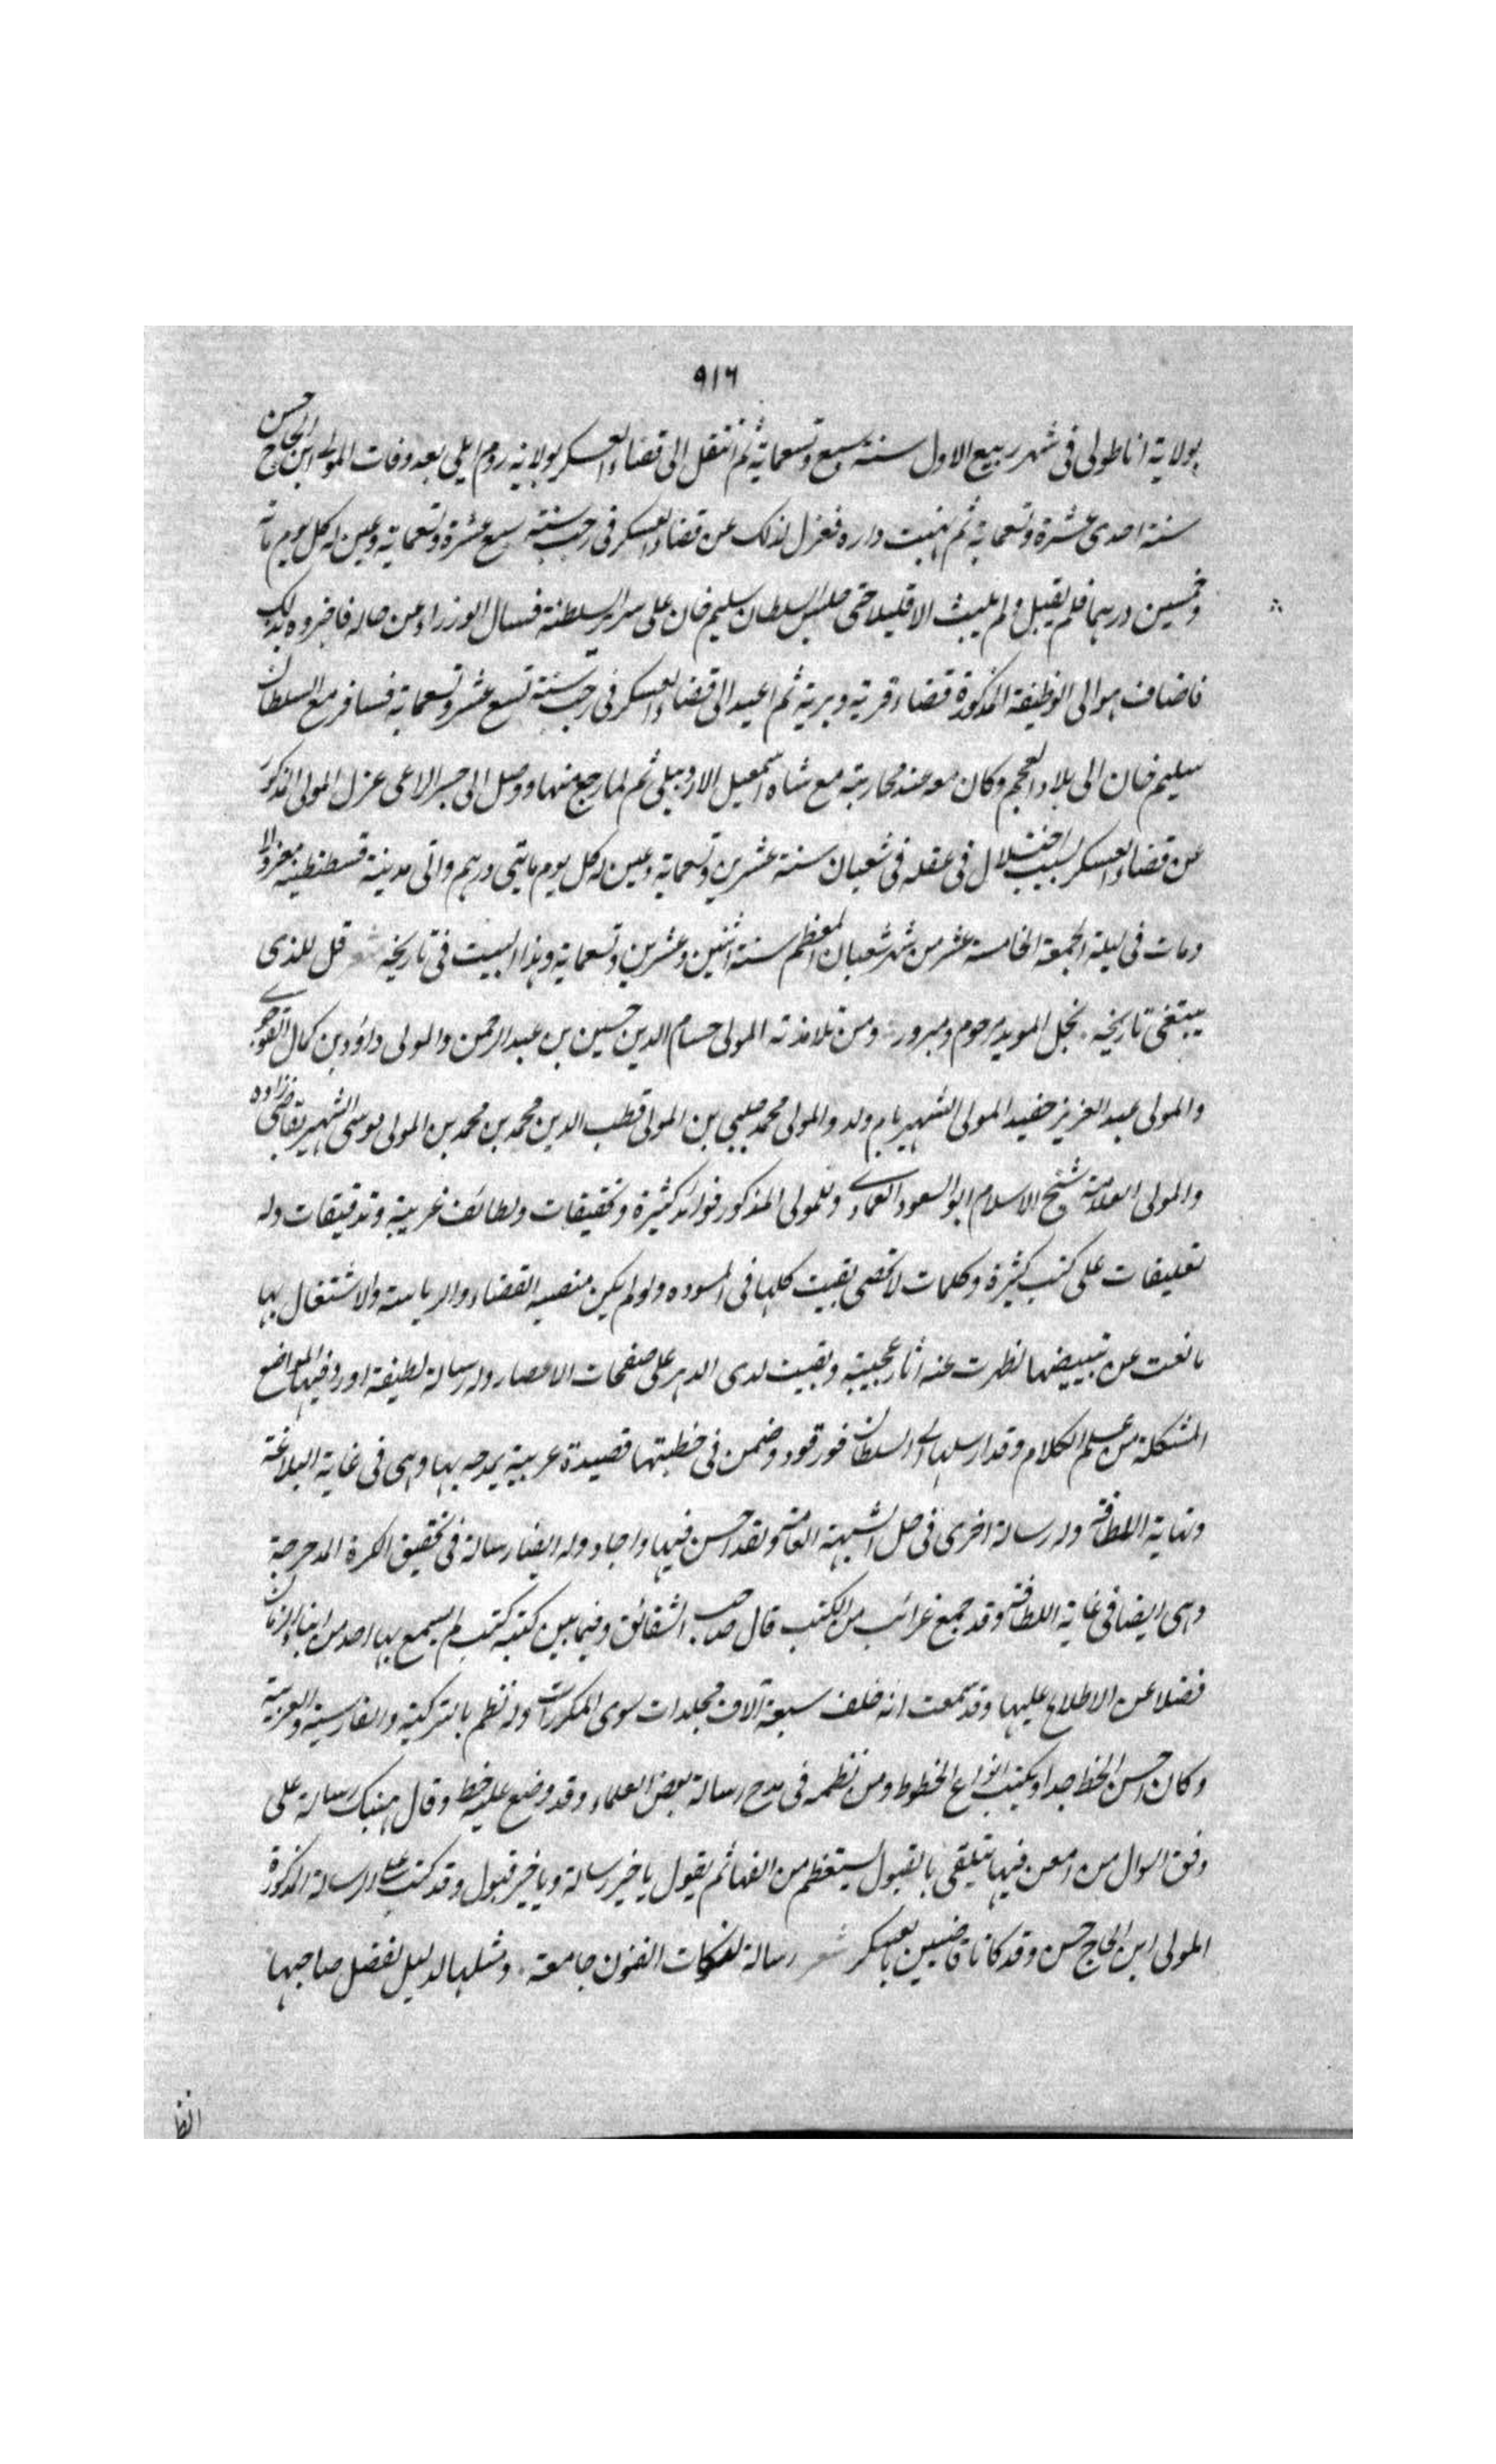 ٩١٦
بولاية اناطولى فى شهر ربيع الاول سنة سبع وتسعماية ثم انتقل الى قضاء العسكر بولاية روم ايلى بعد وفات المولى ابن الحاج حسن
سنة احدى عشرة وتسعماية ثم نهبت داره فعزل لذلك عن قضاء العسكر فى رجب سنة سبع عشرة وتسعماية وعين له كل يوم ماة
وخمسين درهما فلم يقبل ولم يلبث الا قليلا حتى جلس السلطان سليم خان على سرير السلطنة فسال الوزراء عن حاله فاخبروه بذلك
فاضاف هو الى الوظيفة المذكورة قضاء قرية وبرية ثم اعيد الى قضاء العسكر فى رجب سنة تسع عشر وتسعماية فسافر مع السلطان
سليم خان الى بلاد العجم وكان معه عند محاربته مع شاه اسمعيل الاردبيلى ثم لما رجع منها ووصل الى جسر الاعى عزل المولى المذكور
عن قضاء العسكر بسبب اختلال فى عقله فى شعبان سنة عشرين وتسعماية وعين له كل يوم مايتى درهم واتى مدينة قسطنطينية معزولا
ومات فى ليلة الجمعة الخامسة عشر من شهر شعبان المعظم سنة اثنين وعشرين وتسعماية وهذا البيت فى تاريخه شعر قل للذى
يبتغى تاريخه نجل المويد مرحوم ومبرور ومن تلامذته المولى حسام الدين حسين بن عبد الرحمن والمولى داود بن كمال القوجوى
والمولى عبد العزيز حفيد المولى الشهير بام ولد والمولى محمد چلبى بن المولى قطب الدين محمد بن محمد بن المولى موسى الشهير بقاضى زاده
والمولى العلامة شيخ الاسلام ابو السعود العمادى وللمولى المذكور فوائد كثيرة وتحقيقات ولطائف غريبة وتدقيقات وله
تعليقات على كتب كثيرة وكلمات لا تحصى بقيت كلها فى المسوده ولو لم يكن منصبه القضاء والرياسة والاشتغال بها
مانعت عن تبييضها لظهرت عنه اثار عجيبة وبقيت لدى الدهر على صفحات الاعصار وله رسالة لطيفة اورد فيها المواضع
المشكلة من علم الكلام وقد ارسلها الى السلطان قورقود وضمن فى خطبتها قصيدة عربية يمدحه بها وهى فى غاية البلاغة
ونهاية اللطافة وله رسالة اخرى فى حل الشبهة العامة ولقد احسن فيها واجاد وله ايضا رسالة فى تحقيق الكرة المدحرجة
وهى ايضا فى غاية اللطافة وقد جمع غرائب من الكتب قال صاحب الشقائق وفيما بين كتبه كتب لم يسمع بها احد من ابناء الزمان
فضلا عن الاطلاع عليها وقد سمعت انه خلف سبعة آلاف مجلدات سوى المكررات وله نظم بالتركية والفارسية والعربية
وكان احسن الخط جدا ويكتب انواع الخطوط ومن نظمه فى مدح رسالة بعض العلماء وقد وضع عليه خط وقال هنيك رسالة على
وفق السوال من امعن فيها تتلقى بالقبول يستعظم من الفها ثم يقول يا خير رسالة ويا خير قبول وقد كتب على الرسالة المذكورة
المولى ابن الحاج حسن وقد كانا قاضيين بالعسكر شعر رسالة لنكات الفنون جامعة ومثلها لدليل لفضل صاحبها